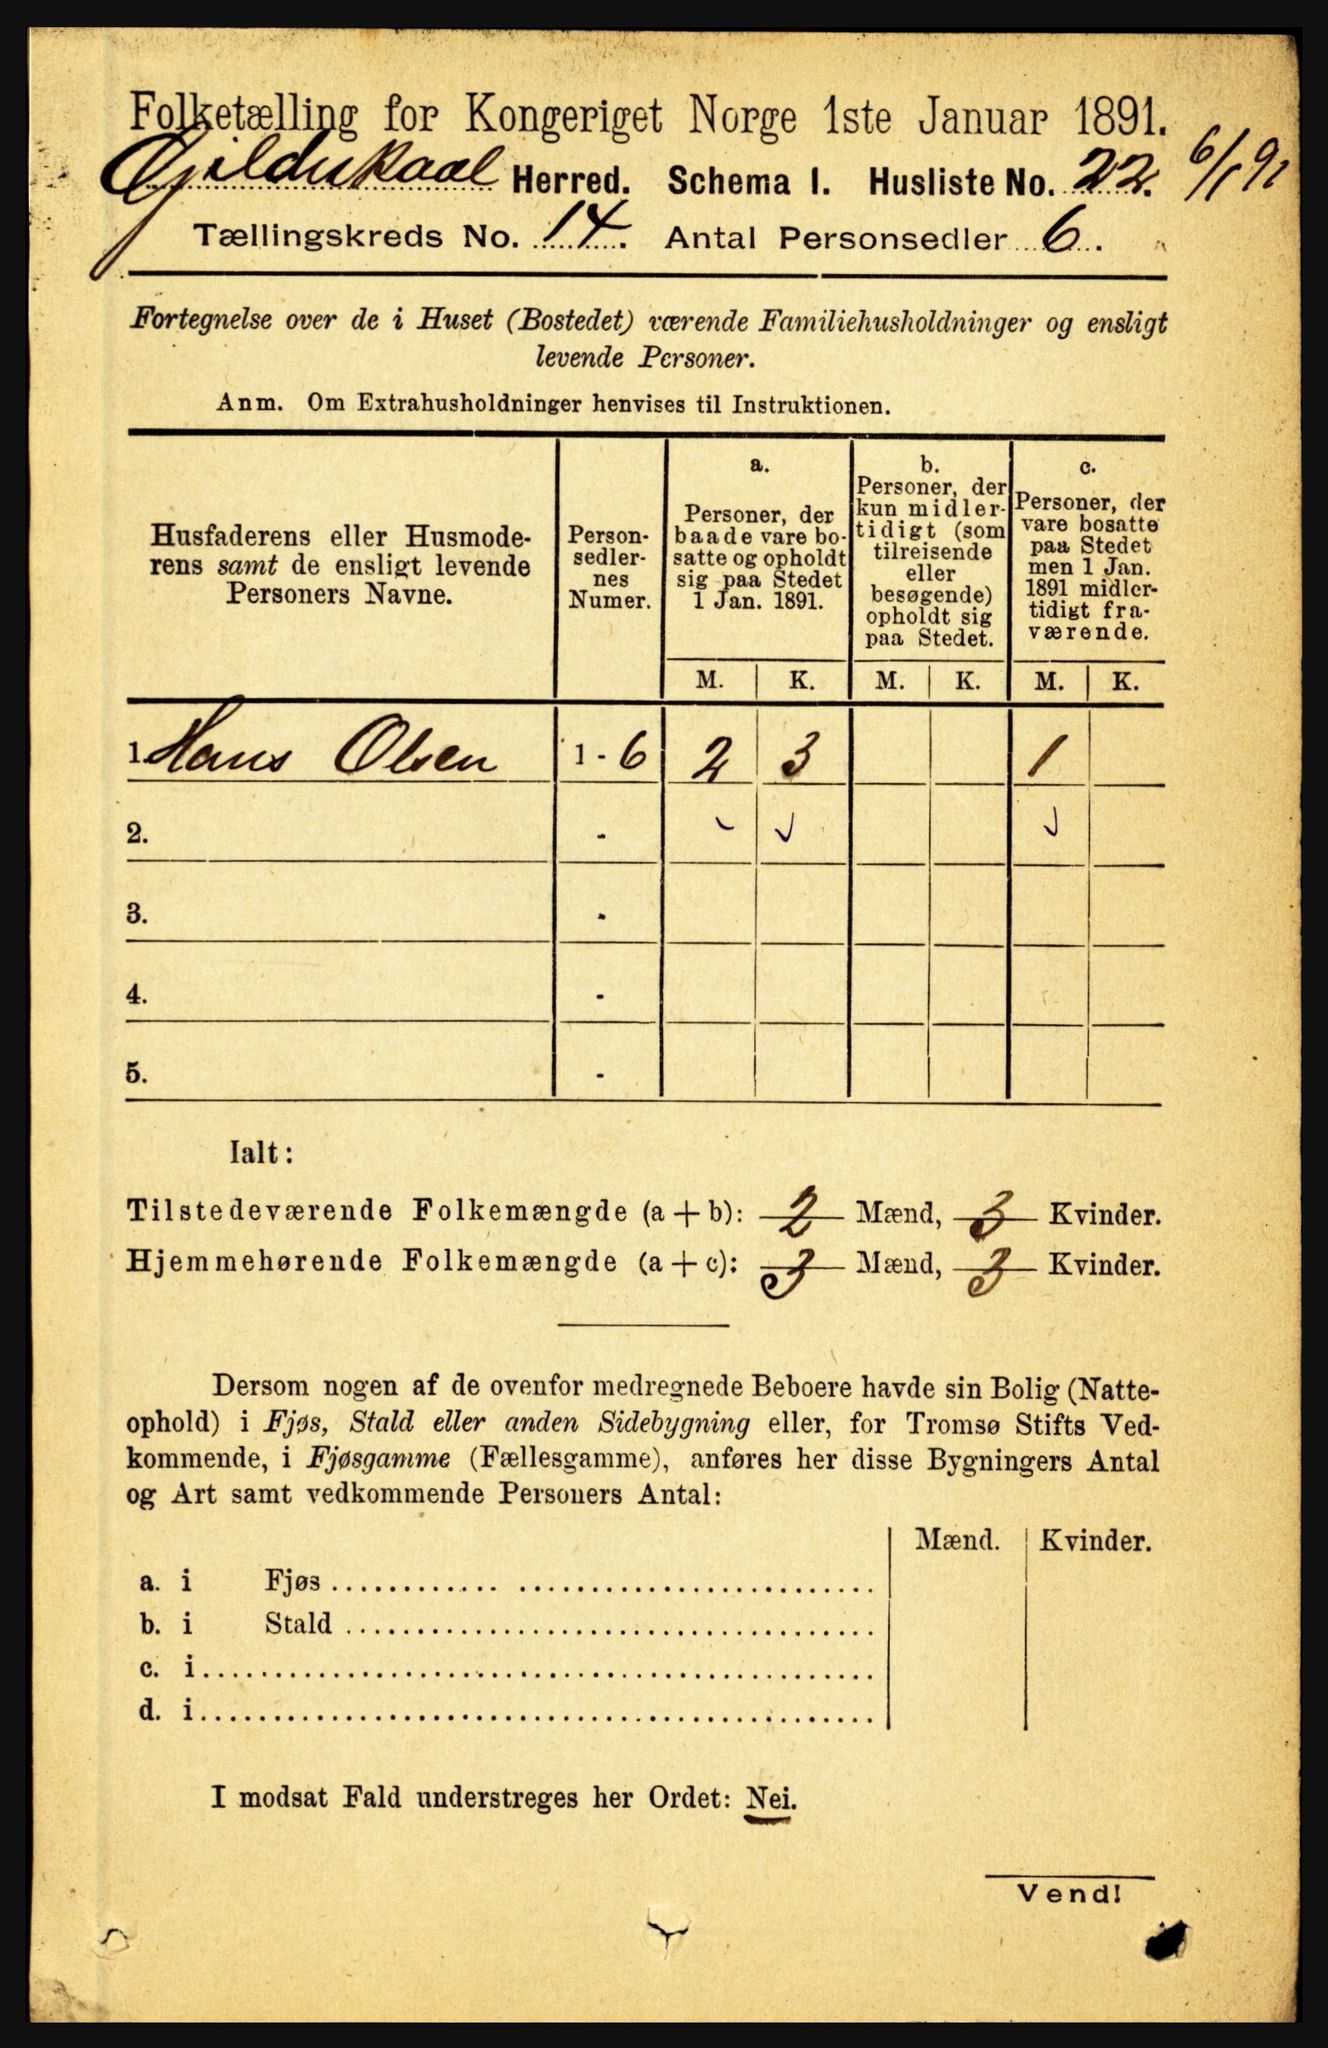 Folketælling for Kongeriget Norge 1ste Januar 1891.
Gildeskaal Herred. Schema I. Husliste No. 22. 6/1 91
Tællingskreds No. 14. Antal Personsedler 6.
Fortegnelse over de i Huset (Bostedet) værende Familiehusholdninger og ensligt
levende Personer.
Anm. Om Extrahusholdninger henvises til Instruktionen.
Husfaderens eller Husmode-
rens samt de ensligt levende
Personers Navne.
Person-
sedler-
nes
Numer.
a.
Personer, der
baade vare bo-
satte og opholdt
sig paa Stedet
1 Jan. 1891.
b.
Personer, der
kun midler-
tidigt (som
tilreisende
eller
besøgende)
opholdt sig
paa Stedet.
c.
Personer, der
vare bosatte
paa Stedet
men 1 Jan.
1891 midler-
tidigt fra-
værende.
M. K. M. K. M. K.
1. Hans Olsen 1 - 6 2 3 1
2. -
3. -
4. -
5. -
Ialt:
Tilstedeværende Folkemængde (a + b): 2 Mænd, 3 Kvinder.
Hjemmehørende Folkemængde (a + c): 3 Mænd, 3 Kvinder.
Dersom nogen af de ovenfor medregnede Beboere havde sin Bolig (Natte-
ophold) i Fjøs, Stald eller anden Sidebygning eller, for Tromsø Stifts Ved-
kommende, i Fjøsgamme (Fællesgamme), anføres her disse Bygningers Antal
og Art samt vedkommende Personers Antal:
Mænd. Kvinder.
a. i Fjøs
b. i Stald
c. i
d. i
I modsat Fald understreges her Ordet: Nei.
Vend!